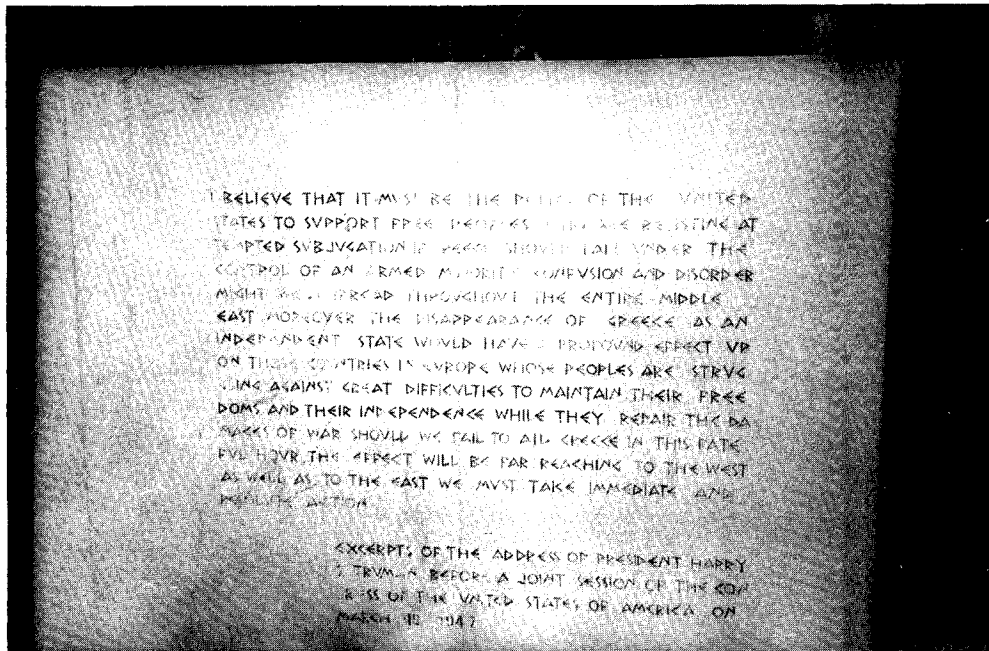 I BELIEVE THAT IT MVST BE THE POLICY OF THE VNITED
STATES TO SVPPORT FREE PEOPLES WHO ARE RESISTING AT
TEMPTED SVBJVGATION IF GREECE SHOVLD FALL VNDER THE
CONTROL OF AN ARMED MINORITY CONFVSION AND DISORDER
MIGHT WELL SPREAD THROVGHOVT THE ENTIRE MIDDLE
EAST MOREOVER THE DISAPPEARANCE OF GREECE AS AN
INDEPENDENT STATE WOVLD HAVE A PROFOVND EFFECT VP
ON THOSE COVNTRIES IN EVROPE WHOSE PEOPLES ARE STRVG
GLING AGAINST GREAT DIFFICVLTIES TO MAINTAIN THEIR FREE
DOMS AND THEIR INDEPENDENCE WHILE THEY REPAIR THE DA
MAGES OF WAR SHOVLD WE FAIL TO AID GREECE IN THIS FATE
FVL HOVR, THE EFFECT WILL BE FAR REACHING TO THE WEST
AS WELL AS TO THE EAST WE MVST TAKE IMMEDIATE AND
RESOLVTE ACTION
EXCERPTS OF THE ADDRESS OF PRESIDENT HARRY
S TRVMAN BEFORE A JOINT SESSION OF THE CON
GRESS OF THE VNITED STATES OF AMERICA ON
MARCH 12 1947